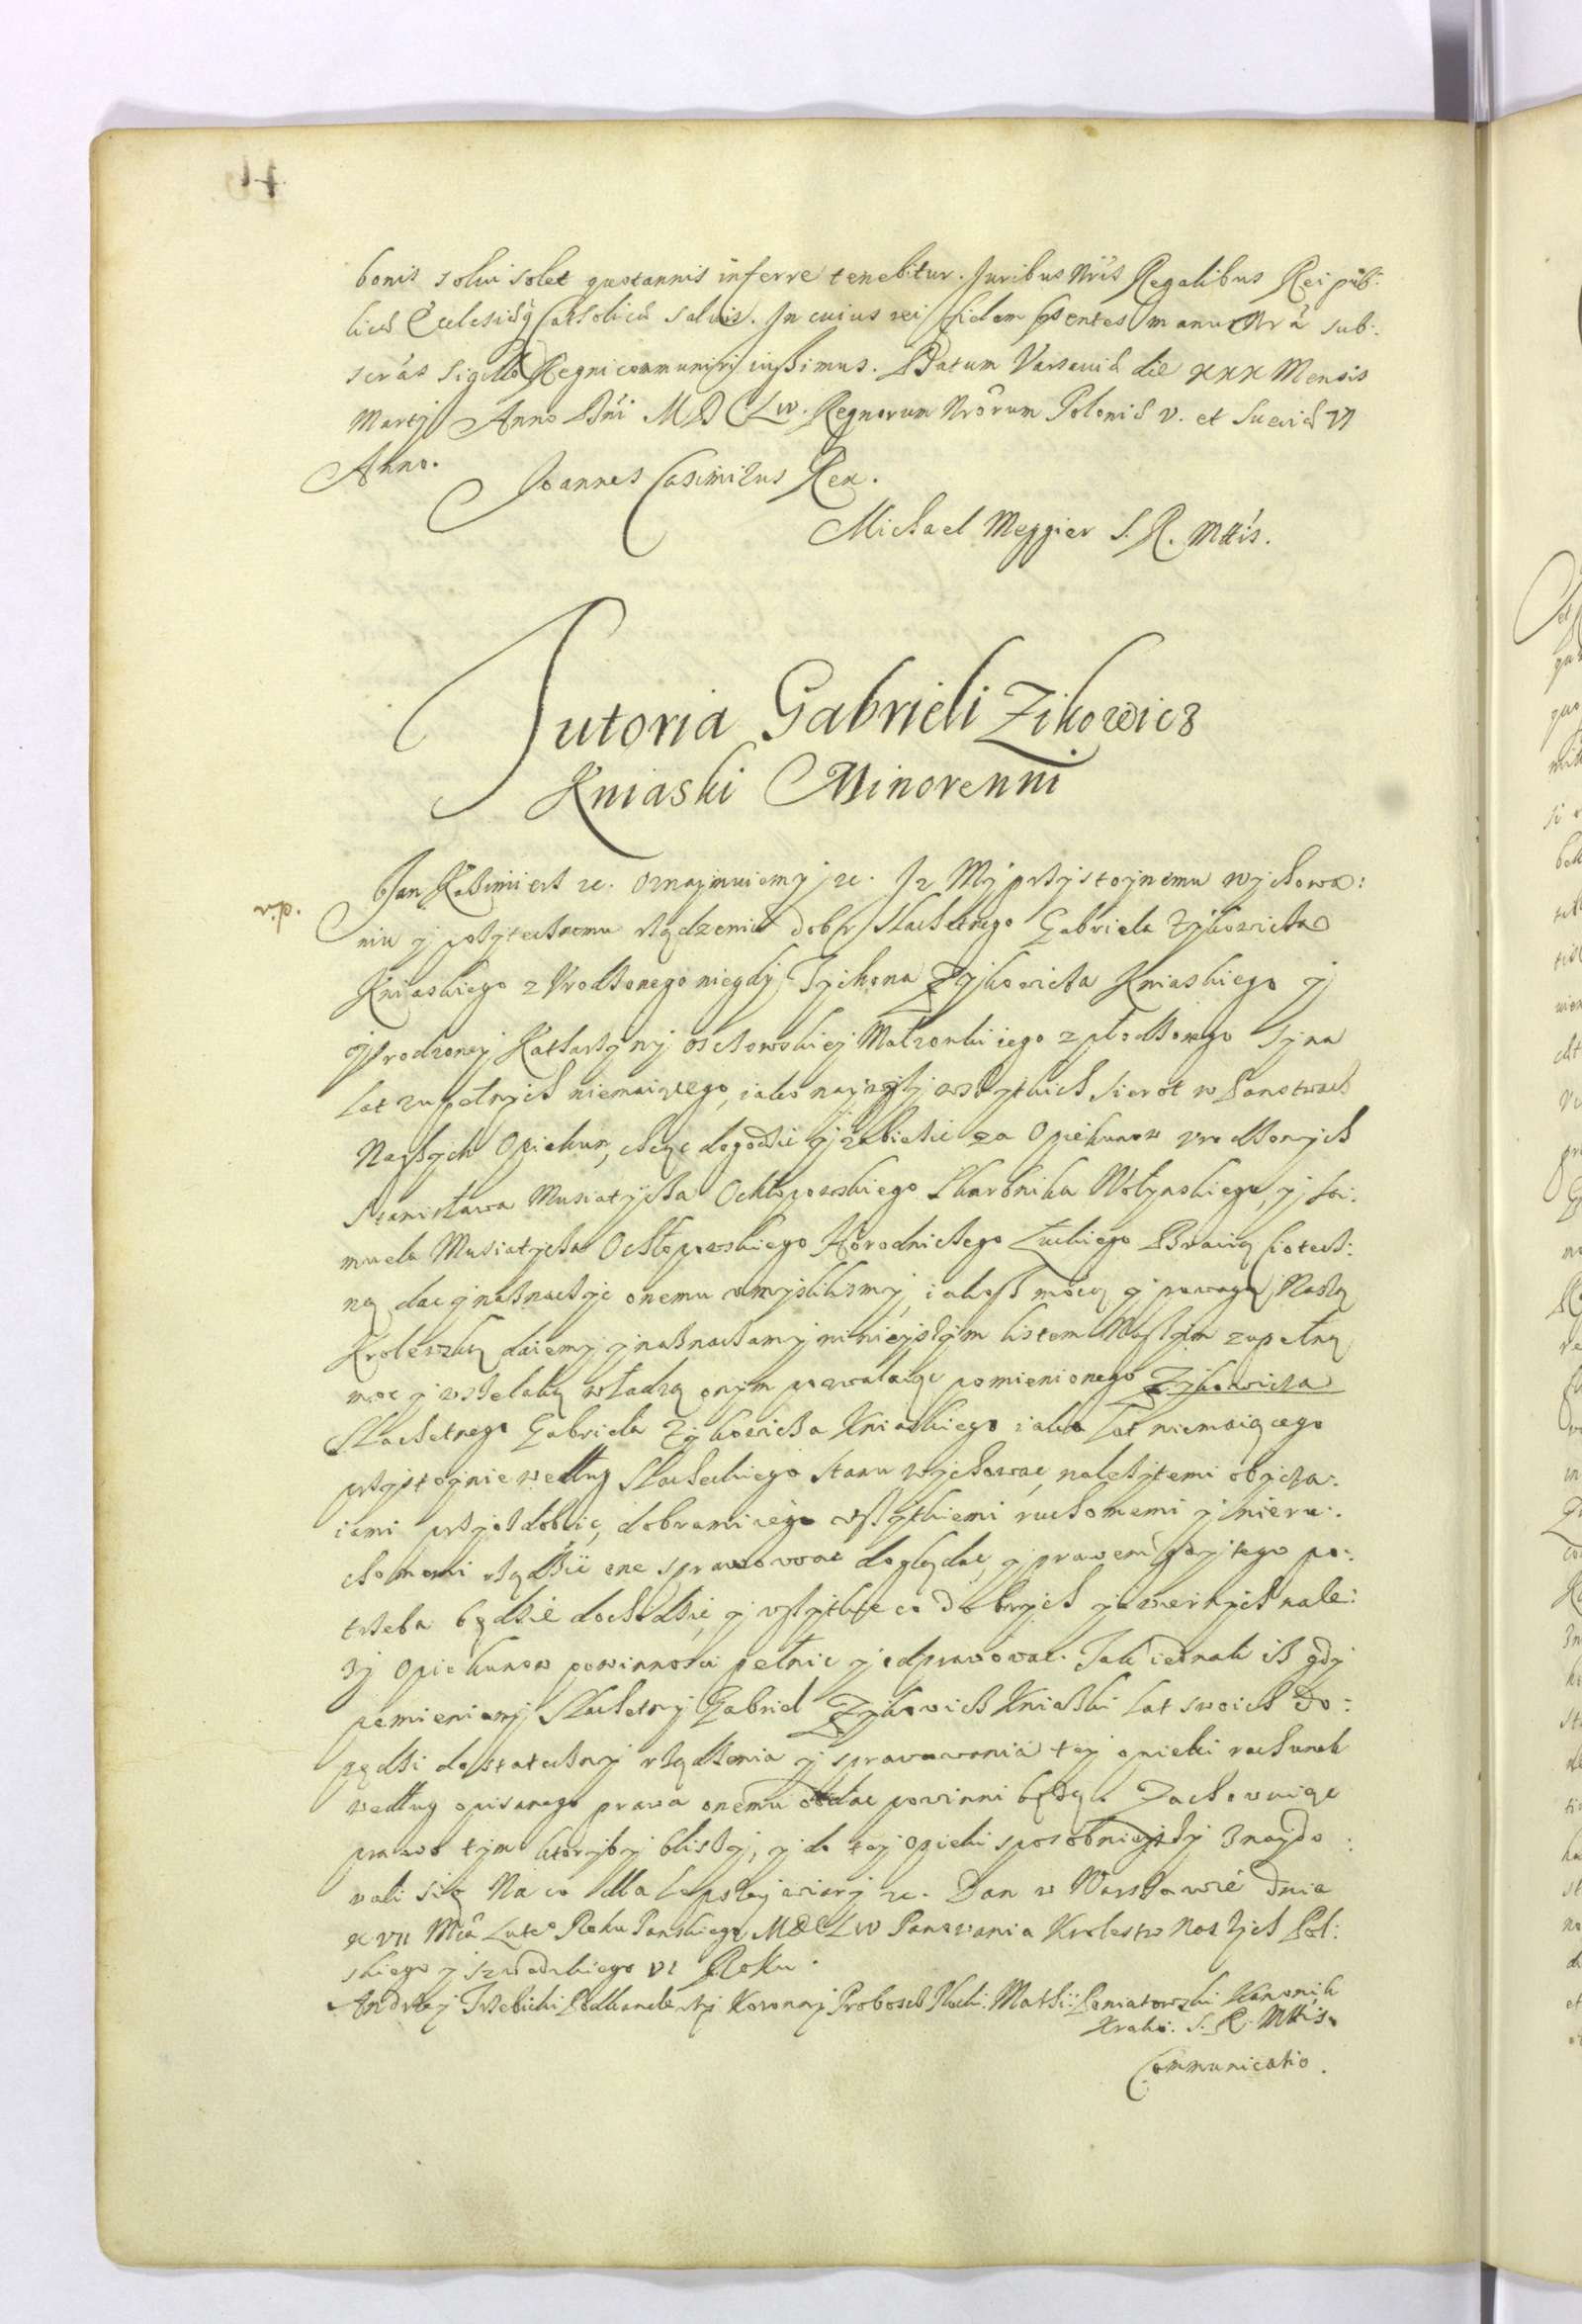 bonis solui solet quotannis inferre tenebitur. Juribus Nris Regalibus Rei pub:
licæ Ecclesiæq Catholicæ saluis. In cuius rei fidem pntes manu Nrâ sub:
scràs Sigillo Regni communiri iussimus. Datum Varsauiæ die XXX Mensis
Martij Anno Dni MDCLIV. Regnorum Nrorum Poloniæ V. et Sueciæ VI
Anno.
Joannes Casimirus Rex.
Michael Meggier S. R. Mttis.
Tutoria Gabrieli Zikowicz
Kniaski Minorenni
v.p.
Jan Kazimierz etc. Oznajmuiemy etc. Iz My przystoynemu wychowa:
niu y pożytecznemu rządzeniu dobr Szlachetnego Gabriela Zykowicza
Kniaskiego z Vrodzonego niegdy Tychona Zykowicza Kniaskiego y
Vrodzoney Katharzyny Małzonki iego zpłodzonego Syna
Lat zupełnych niemaiącego, iako naywyszszy wszytkich Sierot w Panstwach
Naszych Opiekun, chcąc dogodzic y zabiezec za Opiekunow Vrodzonych
Stanisława Musiatycza Ochłopowskiego Skarbnika Wołynskiego, y Sa:
muela Musiatycza Ochłopowskiego Horodniczego Łuckiego Bracią Cioteczi:
ną dac y naznaczyc onemu vmyslilismy, iakosz mocą y powagą Naszą
Krolewską daiemy y naznaczamy ninieyszym listem Naszym zupełną
moc y wszelaką władzą onym pozwalaiąc pomienionego Zykowicza
Szlachetnego Gabriela Zykowicza Kniaskiego iako Lat niemaiącego
przystoynie według Szlacheckiego stanu wychowac, nalezytemi obycza:
iami przyozdobic, dobrami iego wszytkiemi ruchomemi y nieru:
chomemi rządzic one sprawowac doglądac, y prawem gdy tego po:
trzeba będzie dochodzic, y wszytko co dobrych y wiernych nale:
zy Opiekunow powinnosci pełnic y odprawowac. Tak iednak iz gdy
pomieniony Szlachetny Gabriel Zykowicz Kniaski Lat swoich do:
pędzi dostateczny rządzenia y sprawowania tey opieki rachunek
według opisanego prawa onemu oddac powinni będą. Zachowuiąc
prawo tym ktorzyby bliszy, y do tey opieki sposobnieyszy znaydo:
wali się Na co dla lepszey wiary etc. Dan w Warszawie dnia
XVII Mca Luteo Roku Panskiego MDCLIV Panowania Krolestw Naszych Pol:
skiego y Szwedzkiego VI Roku.
Andrzey Trzebicki Podkanclerzy Koronny Probosch Płocki. Matthi: Poniatowski Kanonik
Krako: S. R. Mttis.
Communicatio.